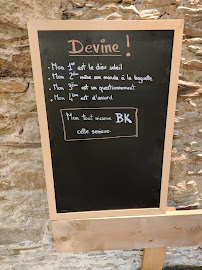 Devine !
. Mon 1er est le dieu soleil
. Mon 2ème mène son monde à la baguette
. Mon 3ème est un questionnement
. Mon 4ème est d'accord
Mon tout ramène BK
cette semaine